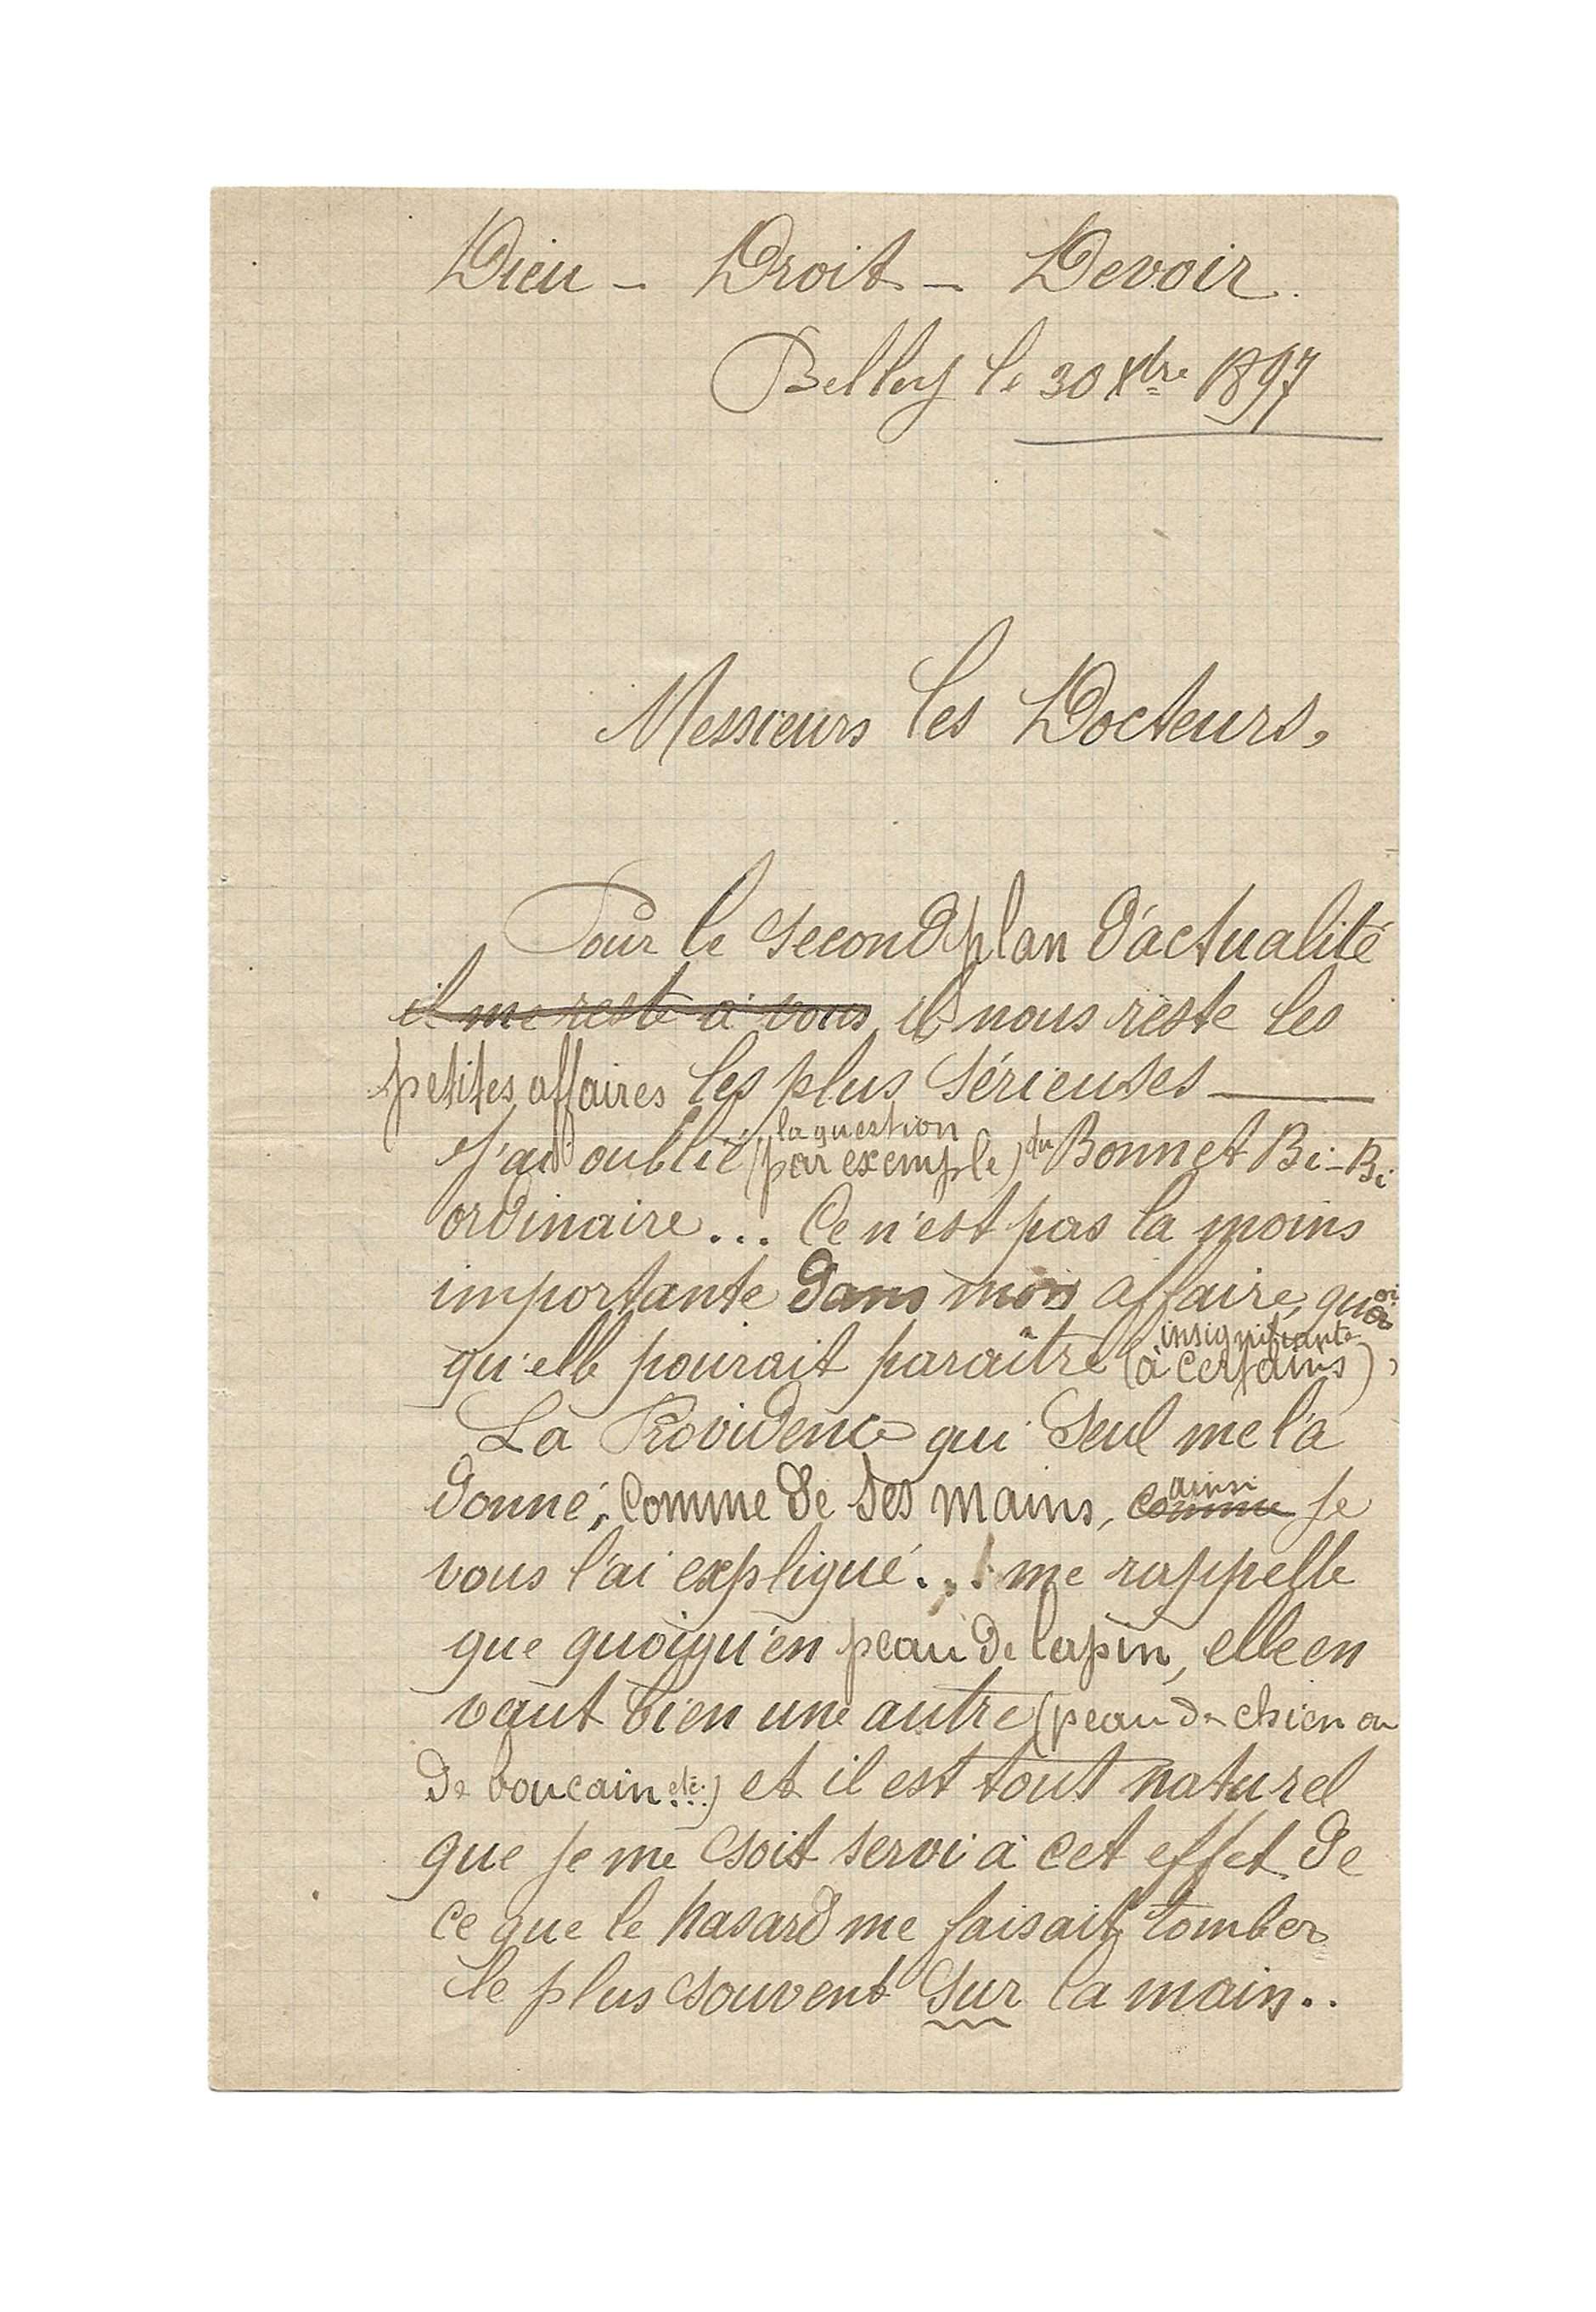 Dieu - Droit - Devoir.
Belley le 30 Xbre 1897
Messieurs les Docteurs,
Pour le second plan d'actualité
il me reste à vous il nous reste les
petites affaires les plus sérieuses —
J'ai oublié la question (par exemple) du Bonnet Bi-Bi
ordinaire... Ce n'est pas la moins
importante dans mon affaire, quoi
qu'elle pourait paraître insignifiante (à certains),
La Providence qui seul me l'a
donné, comme de ses mains, comme ainsi je
vous l'ai expliqué... me rappelle
que quoiqu'en peau de lapin, elle en
vaut bien une autre (peau de chien ou
de boucain etc.) et il est tout naturel
que je me soit servi à cet effet de
ce que le hasard me faisait tomber
le plus souvent sur la main..